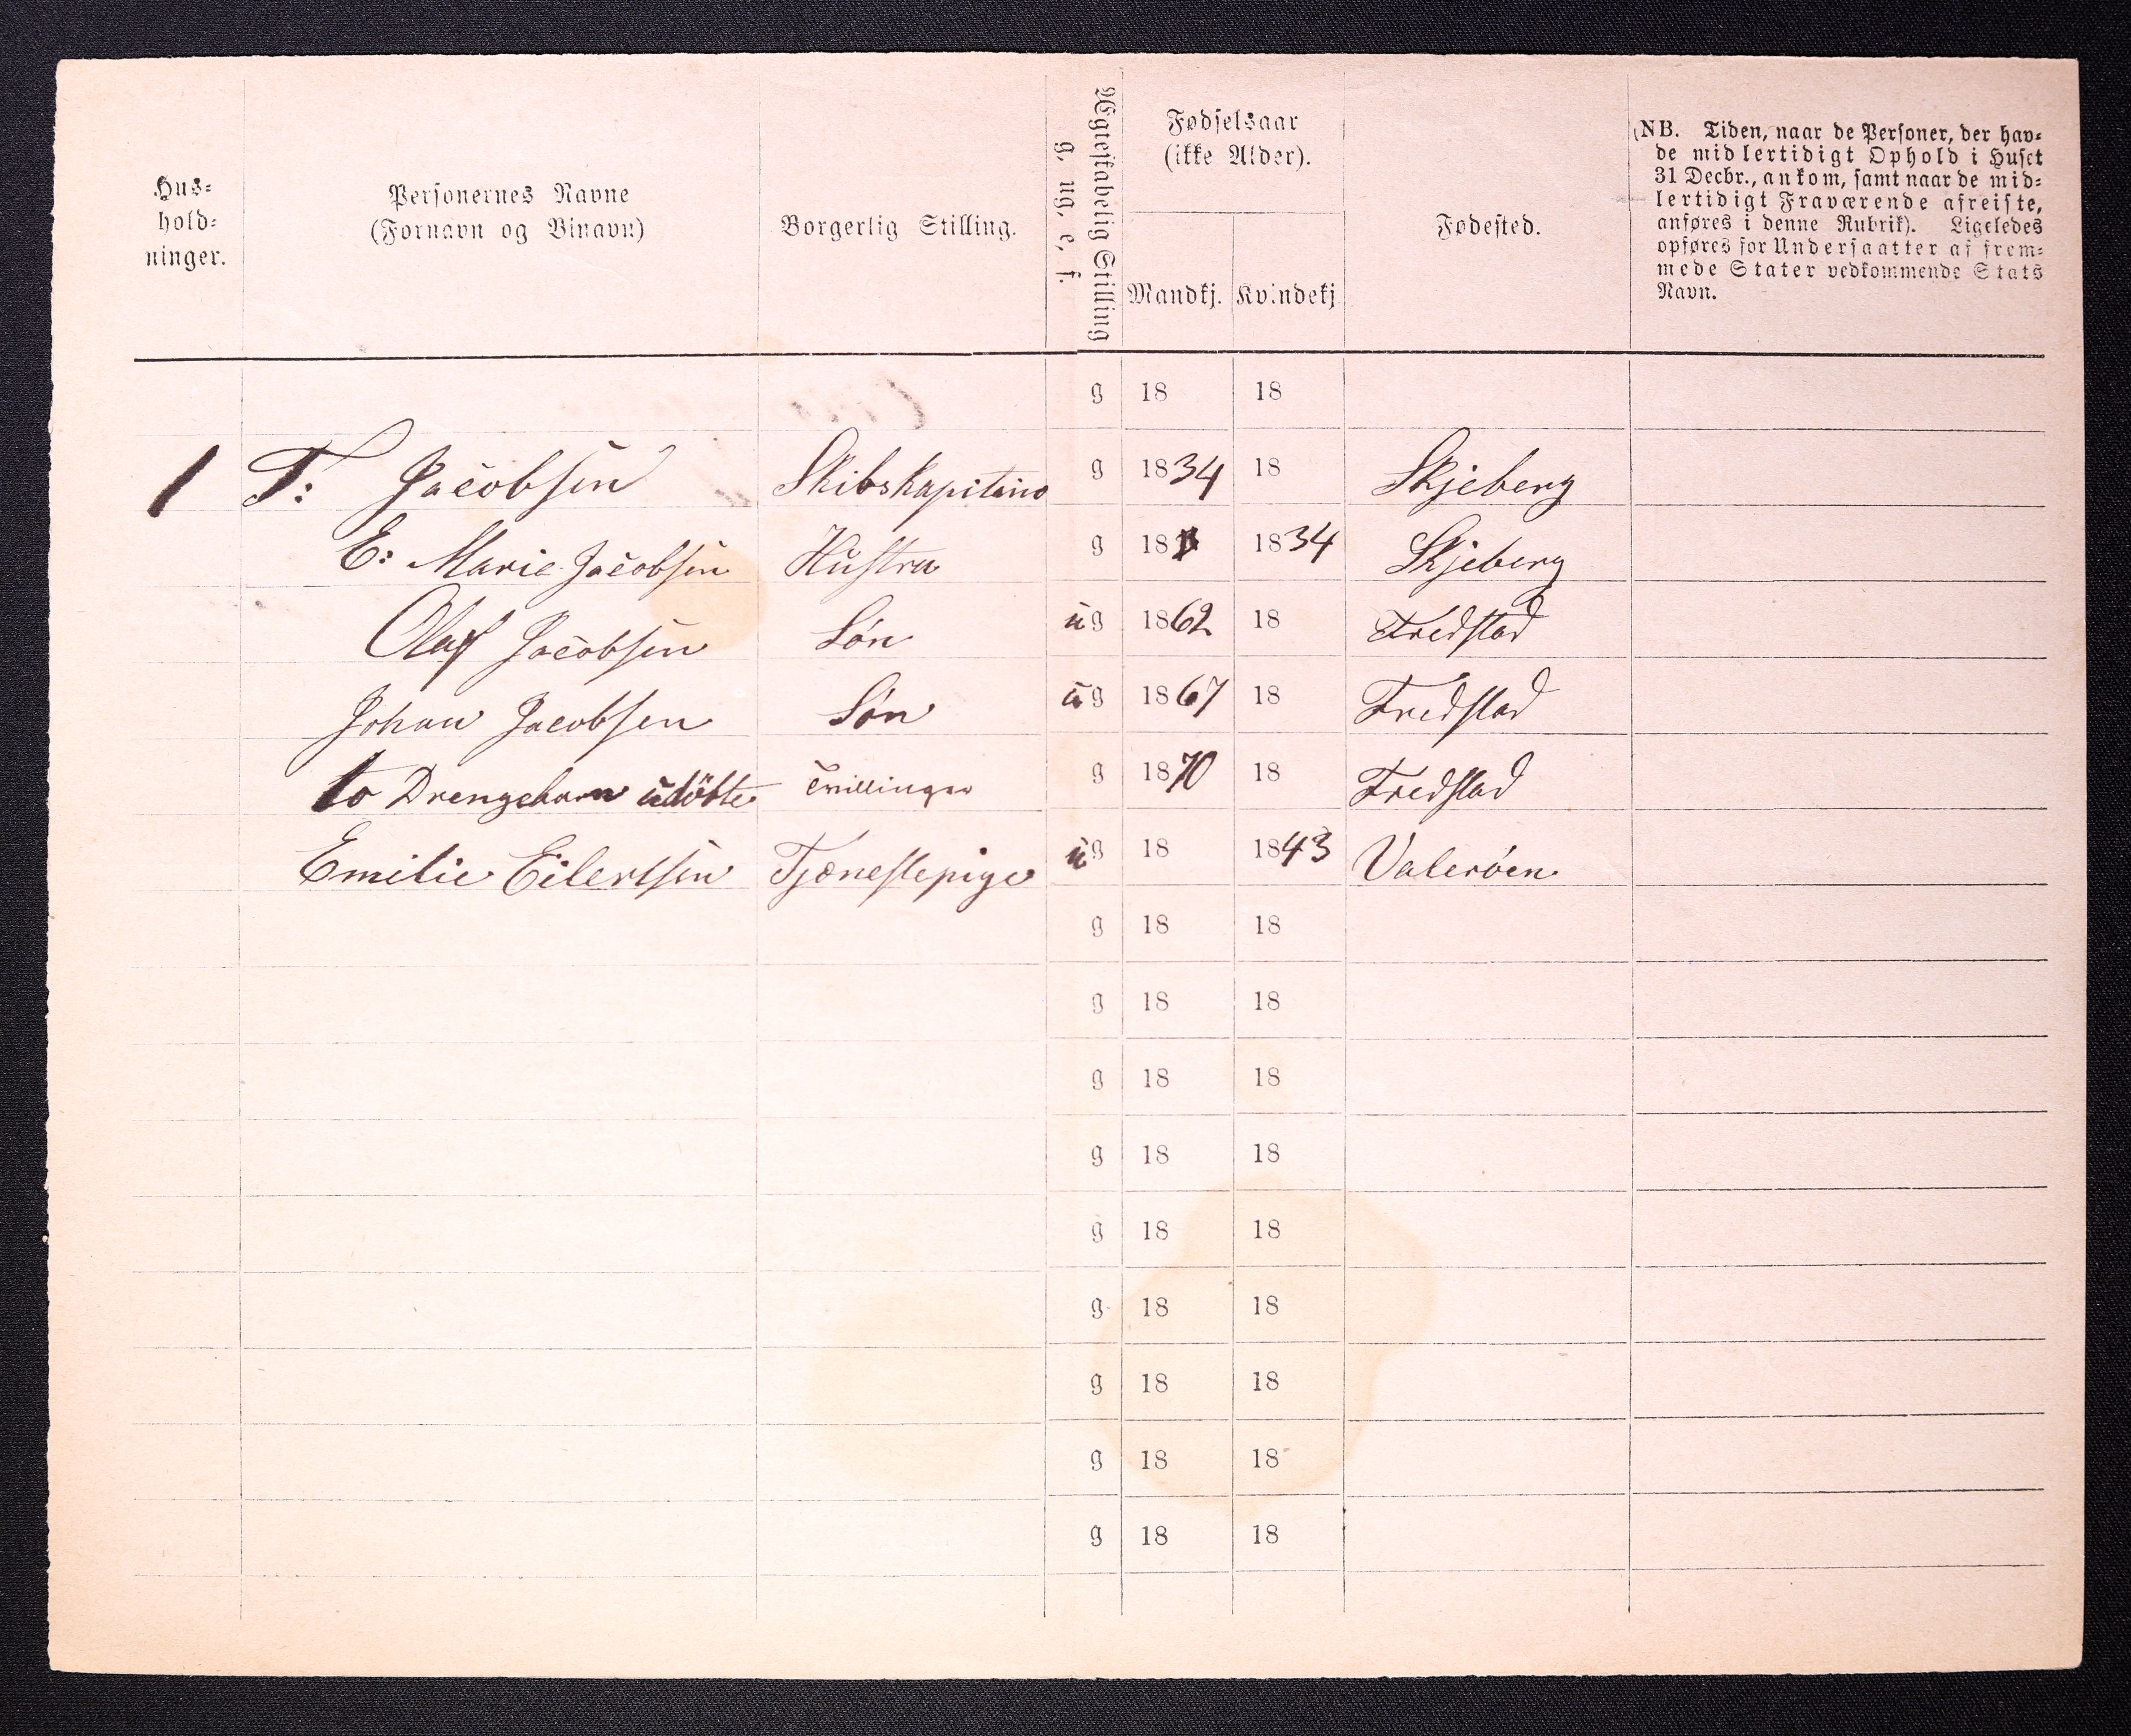 Hus-
hold-
ninger.
Personernes Navne
(Fornavn og Binavn)
Borgerlig Stilling.
Ægteskabelig Stilling
g, ug, e, f.
Fødselsaar
(ikke Alder).
Mandkj. Kvindekj
Fødested.
(NB. Tiden, naar de Personer, der hav-
de midlertidigt Ophold i Huset
31 Decbr., ankom, samt naar de mid-
lertidigt Fraværende afreiste,
anføres i denne Rubrik). Ligeledes
opføres for Undersaatter af frem-
mede Stater vedkommende Stats
Navn.
g 18 18
1 T: Jacobsen Skibskapitino g 1834 18 Skjeberg
E: Marie Jacobsen Hustru g 18 1834 Skjeberg
Olaf Jacobsen Søn ug 1862 18 Fredstad
Johan Jacobsen Søn ug 1867 18 Fredstad
to Drengebarn udöbte Tvillinger g 1870 18 Fredstad
Emilie Eilertsen Tjenestepige ug 18 1843 Valeröen
g 18 18
g 18 18
g 18 18
g 18 18
g 18 18
g 18 18
g 18 18
g 18 18
g 18 18